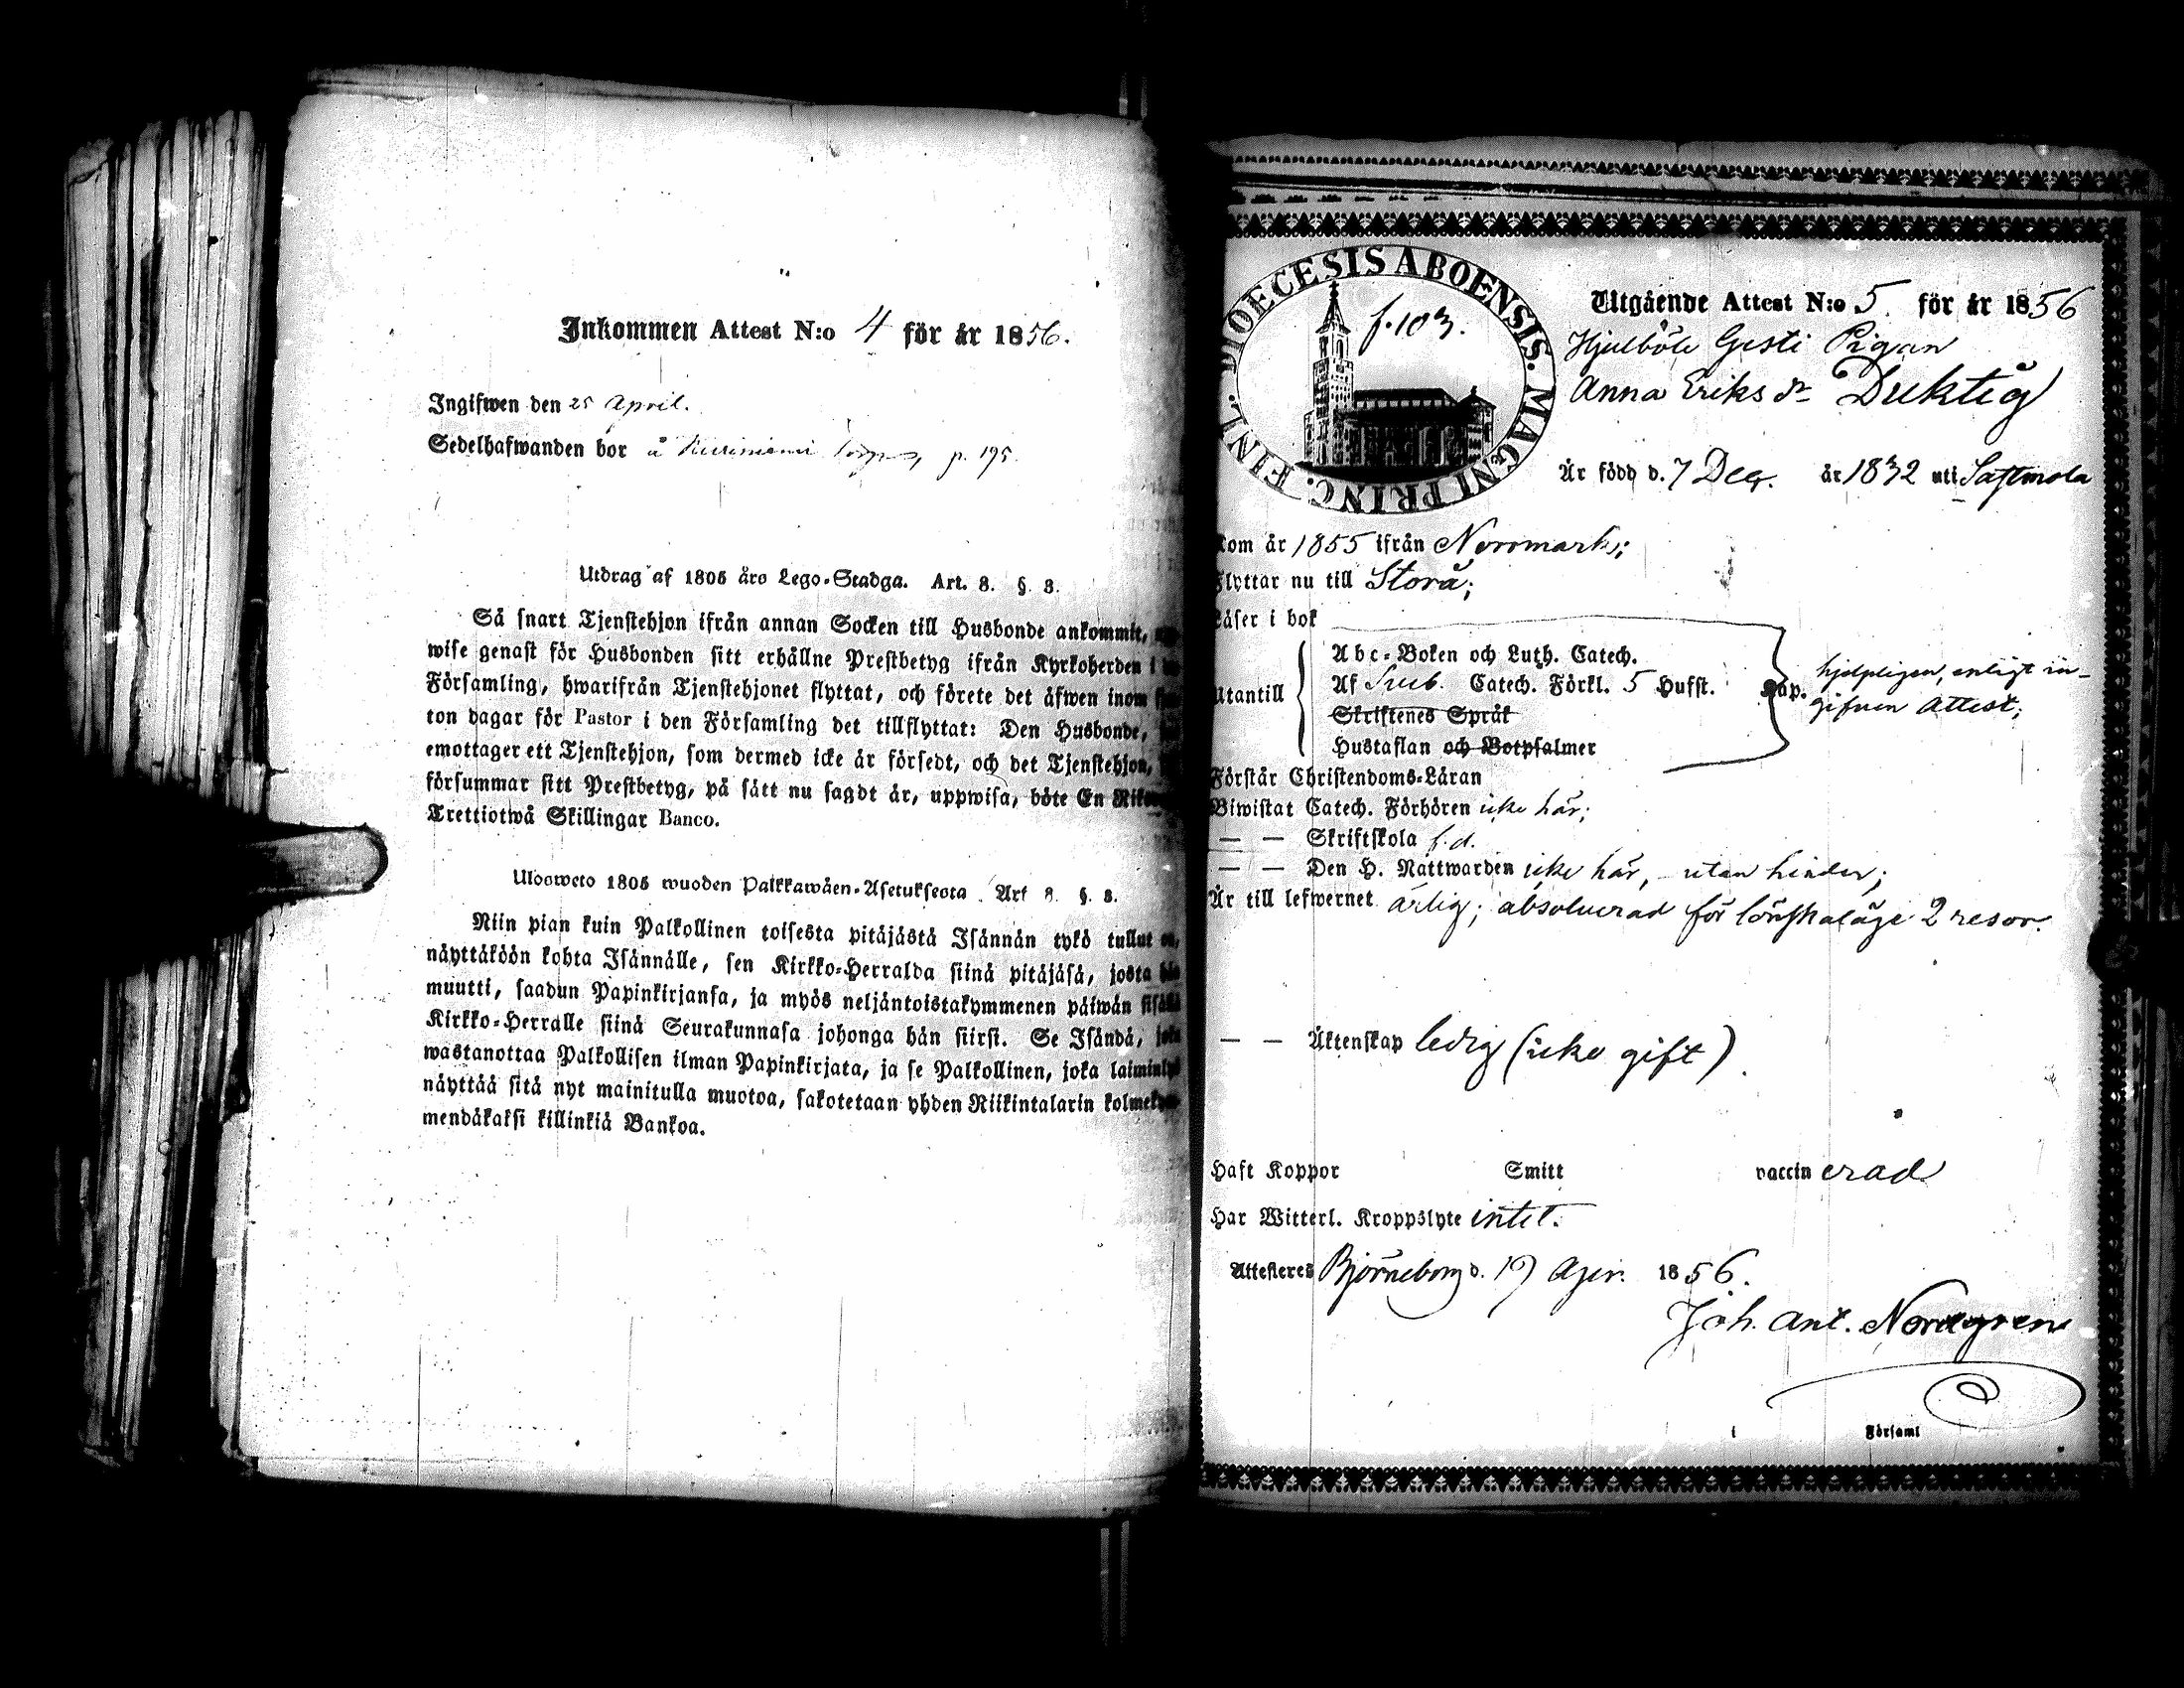 Inkommen Attest N:o 4 för år 1856.
Ingifwen den 25 April.
Sedelhafwanden bor å torp, p. 195.
Utdrag af 1805 års Lego-Stadga. Art. 8. §. 3.
Så snart Tjenstehjon ifrån annan Socken till Husbonde ankommit,
wise genast för Husbonden sitt erhållne Prestbetyg ifrån Kyrkoherden i
Församling, hwarifrån Tjenstehjonet flyttat, och förete det äfwen inom
ton dagar för Pastor i den Församling det tillflyttat: Den Husbonde,
emottager ett Tjenstehjon, som dermed icke är försedt, och det Tjenstehjon,
försummar sitt Prestbetyg, på sätt nu sagdt är, uppwisa, böte En
Trettiotwå Skillingar Banco.
Ulosweto 1805 wuoden Palkkawäen-Asetuksesta Art 8. §. 3.
Niin pian kuin Palkollinen toisesta pitäjästä Isännän tykö tullut on,
näyttäköön kohta Isännälle, sen Kirkko-Herralda siinä pitäjäsä, josta hän
muutti, saadun Papinkirjansa, ja myös neljäntoistakymmenen päiwän sisällä
Kirkko-Herralle siinä Seurakunnasa johonga hän siirsi. Se Isändä, joka
wastanottaa Palkollisen ilman Papinkirjata, ja se Palkollinen, joka laiminlyö
näyttää sitä nyt mainitulla muotoa, sakotetaan yhden Riikintalarin kolmekym-
mendäkaksi killinkiä Bankoa.
DIOECESIS ABOENSIS. MAGNI PRINC. FINL.
f. 103.
Utgående Attest N:o 5. för år 1856
Hjulböle Gesti Pigan
Anna Eriks dr Duktig
Är född d. 7 Decr. år 1832 uti Sastmola
kom år 1855 ifrån Norrmark;
Flyttar nu till Storå;
Läser i bok
Utantill
Abc-Boken och Luth. Catech.
Af Sveb. Catech. Förkl. 5 Hufst.
Skriftenes Språk
Hustaflan och Botpsalmer
Kap. hjelpligen, enligt in-
gifven Attest;
Förstår Christendoms-Läran
Biwistat Catech. Förhören icke här;
— — Skriftskola f. d.
— — Den H. Nattwarden icke här, utan hinder;
Är till lefwernet ärlig; absolverad för lönskaläge 2 resor.
— — Äktenskap ledig (icke gift)
Haft Koppor Smitt vaccinerad
Har Witterl. Kroppslyte intet.
Attesteres Björneborg d. 19 Apr. 1856.
Joh. Ant. Nordgren
i Församl